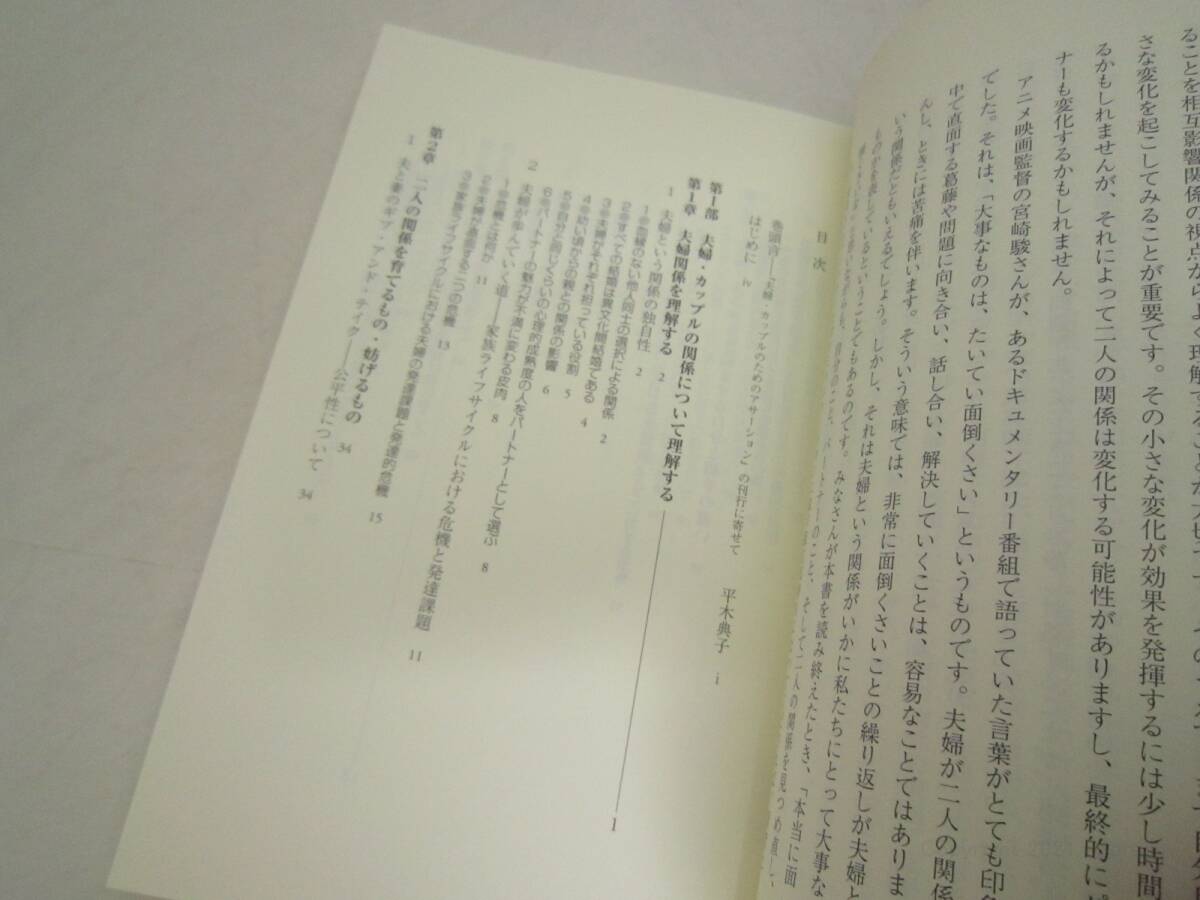 ることを相互影響関係の視点から
さな変化を起こしてみることが重要です。その小さな変化が効果を発揮するには少し時間
るかもしれませんが、それによって二人の関係は変化する可能性がありますし、最終的に
ナーも変化するかもしれません。
アニメ映画監督の宮崎駿さんが、あるドキュメンタリー番組で語っていた言葉がとても印
でした。それは、「大事なものは、たいてい面倒くさい」というものです。夫婦が二人の関係
中で直面する葛藤や問題に向き合い、話し合い、解決していくことは、容易なことではありま
んし、ときには苦痛を伴います。そういう意味では、非常に面倒くさいことの繰り返しが夫婦と
いう関係だともいえるでしょう。しかし、それは夫婦という関係がいかに私たちにとって大事な
ものかを表しているということでもあるのです。みなさんが本書を読み終えたとき、「本当に面
そして二人の関係を見つめ直し、
目次
巻頭言――『夫婦・カップルのためのアサーション』の刊行に寄せて 平木典子 i
はじめに iv
第Ⅰ部 夫婦・カップルの関係について理解する
第1章 夫婦関係を理解する 1
1 夫婦という関係の独自性 2
1 血縁のない他人同士の選択による関係 2
2 すべての結婚は異文化間結婚である 4
3 夫婦がそれぞれ担っている役割 5
4 幼い頃からの親との関係の影響 6
5 自分と同じくらいの心理的成熟度の人をパートナーとして選ぶ 8
6 パートナーの魅力が不満に変わる皮肉 8
2 夫婦が歩んでいく道――家族ライフサイクルにおける危機と発達課題 11
1 危機とは何か 11
2 夫婦が直面する二つの危機 13
3 家族ライフサイクルにおける夫婦の発達課題と発達的危機 15
第2章 二人の関係を育てるもの・妨げるもの 34
1 夫と妻のギブ・アンド・テイク――公平性について 34